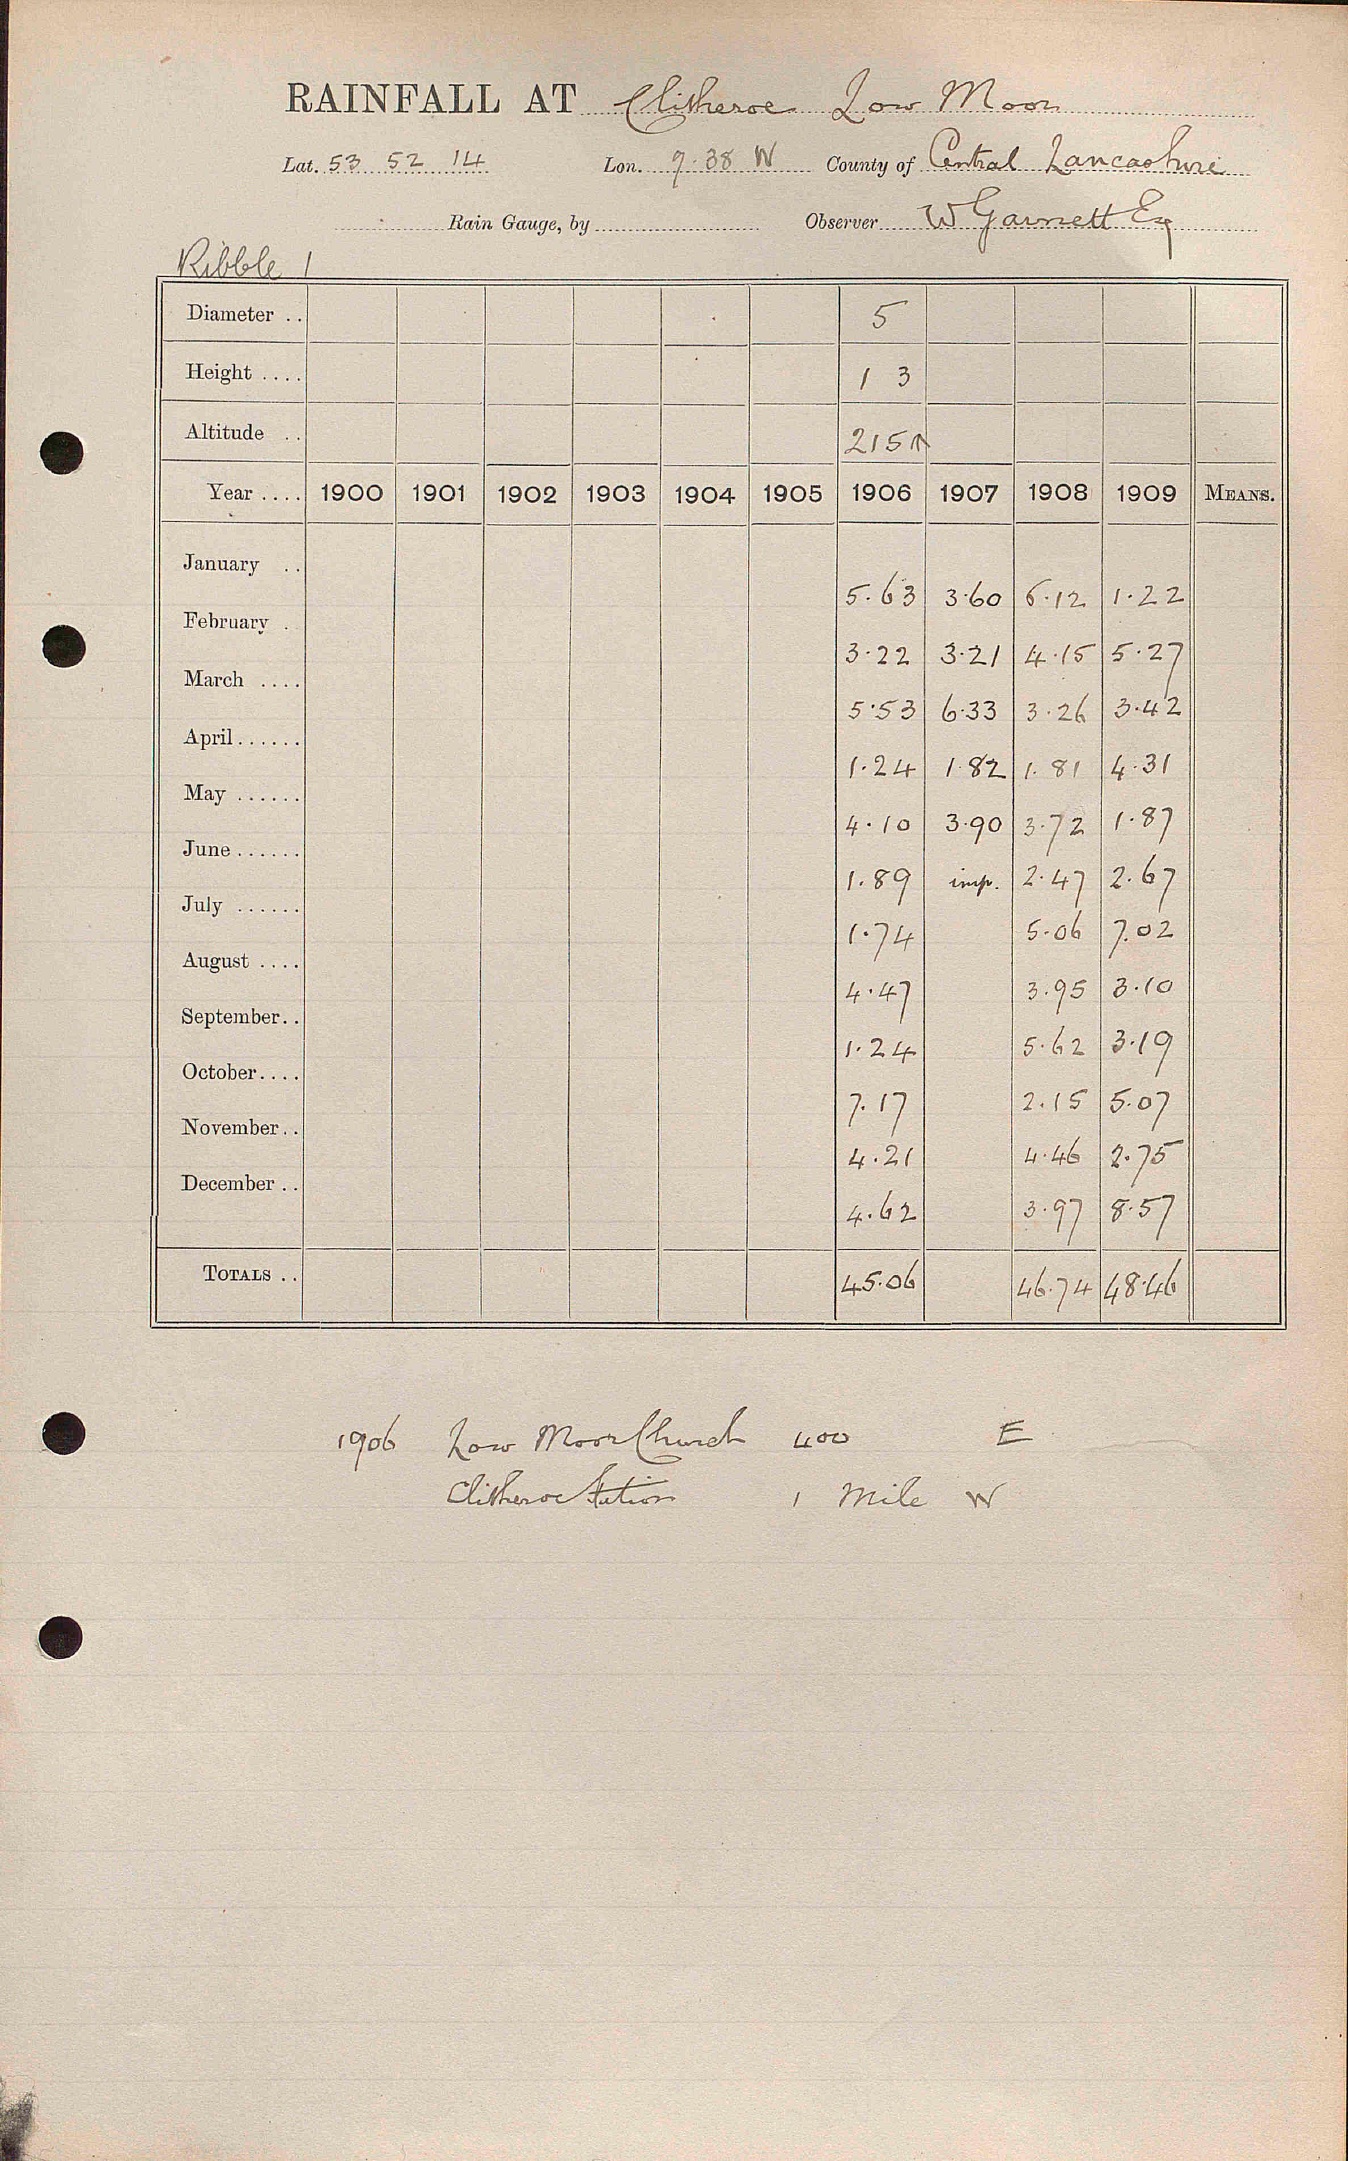 RAINFALL AT Clitheroe Low Moor
Lat. 53 52 14 Lon. 9.38 W County of Central Lancashire
Rain Gauge, by Observer W Garnett Esq
Ribble 1
Diameter .. 5
Height .... 1 3
Altitude .. 215
Year .... 1900 1901 1902 1903 1904 1905 1906 1907 1908 1909 MEANS.
January .. 5.63 3.60 6.12 1.22
February . 3.22 3.21 4.15 5.27
March .... 5.53 6.33 3.26 3.42
April...... 1.24 1.82 1.81 4.31
May ...... 4.10 3.90 3.72 1.87
June...... 1.89 imp. 2.47 2.67
July ...... 1.74 5.06 7.02
August .... 4.47 3.95 3.10
September.. 1.24 5.62 3.19
October.... 7.17 2.15 5.07
November.. 4.21 4.46 2.75
December .. 4.62 3.97 8.57
TOTALS .. 45.06 46.74 48.46
1906 Low Moor Church 400 E
Clitheroe Station 1 Mile W